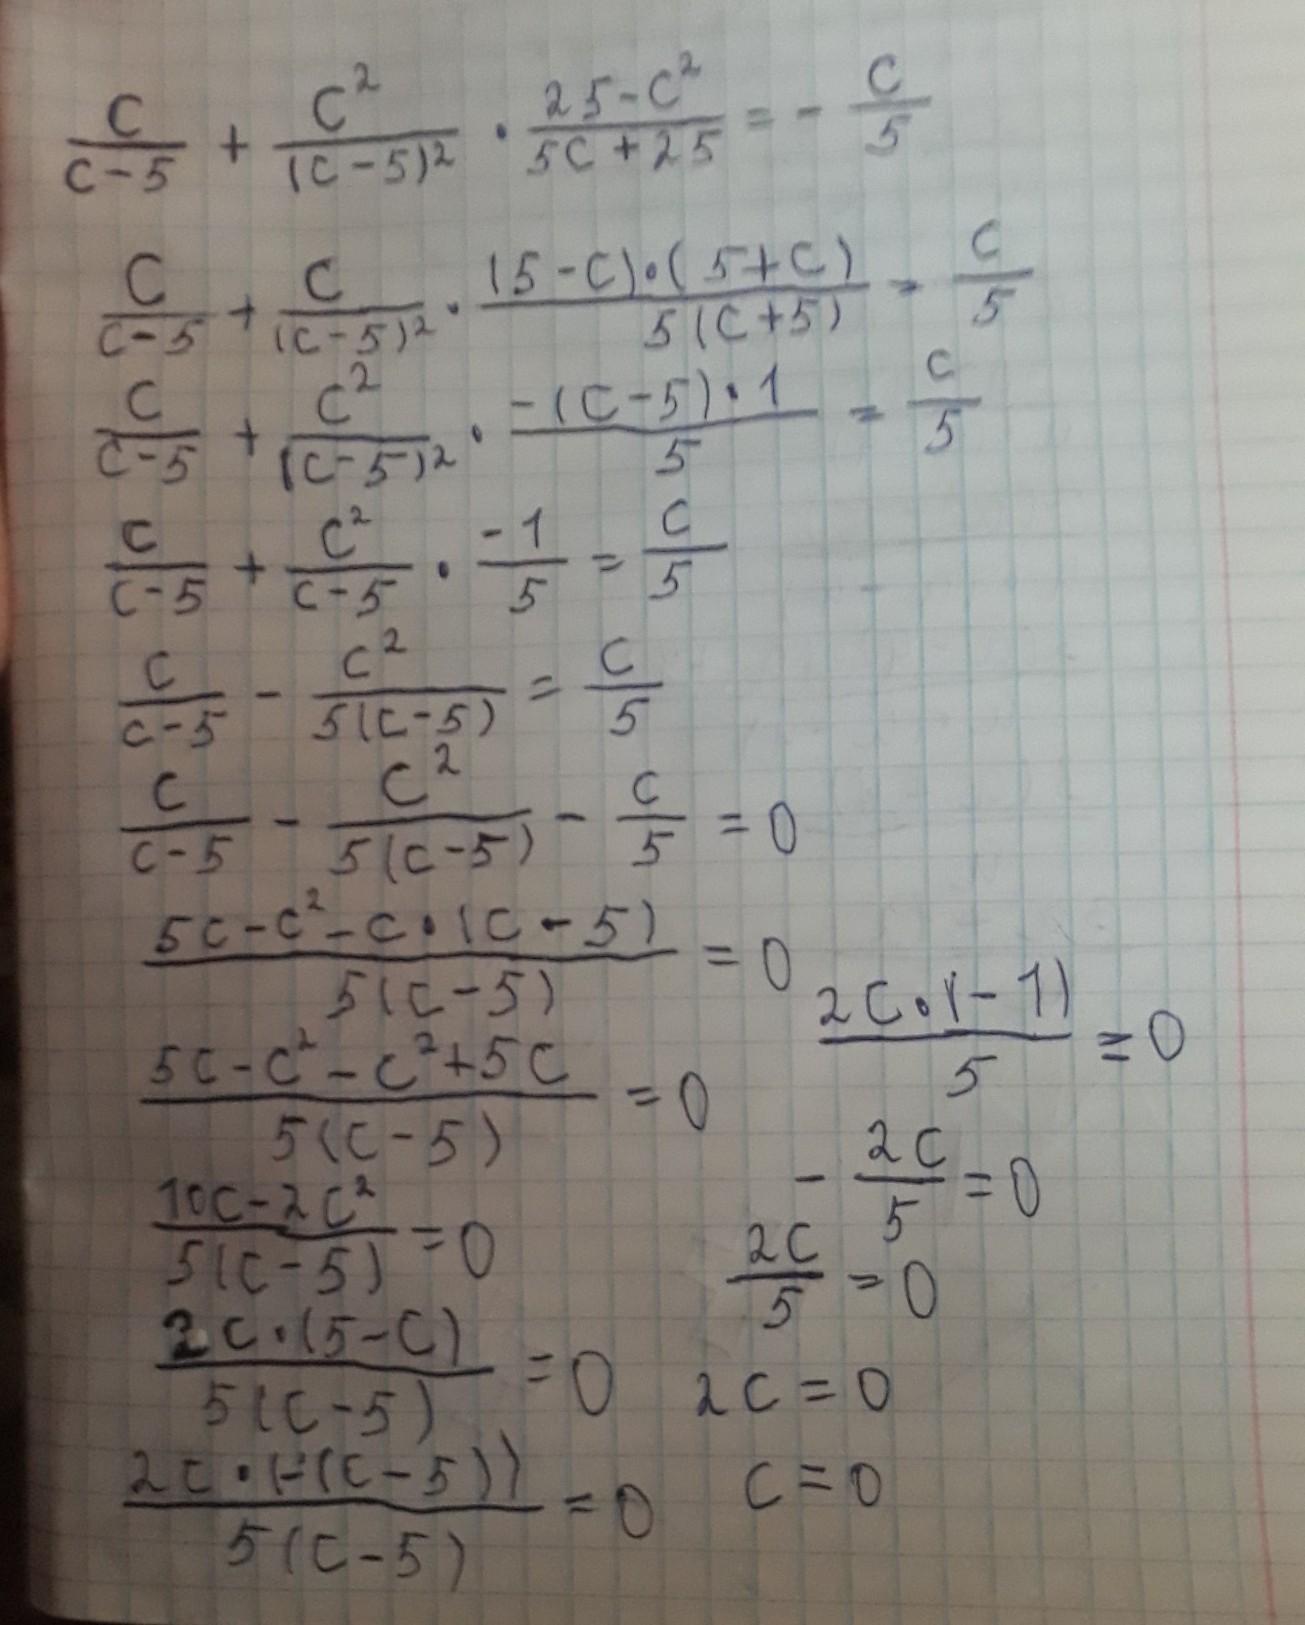 c/(c-5) + c²/(c-5)² · (25-c²)/(5c+25) = - c/5
c/(c-5) + c/(c-5)² · ((5-c)·(5+c))/(5(c+5)) - c/5
c/(c-5) + c²/(c-5)² · (-(c-5)·1)/5 = c/5
c/(c-5) + c²/(c-5) · (-1)/5 = c/5
c/(c-5) - c²/(5(c-5)) = c/5
c/(c-5) - c²/(5(c-5)) - c/5 = 0
(5c-c²-c·(c-5))/(5(c-5)) = 0
(5c-c²-c²+5c)/(5(c-5)) = 0
(10c-2c²)/(5(c-5)) = 0
(2c·(5-c))/(5(c-5)) = 0
(2c·(-(c-5)))/(5(c-5)) = 0
(2c·(-1))/5 = 0
- 2c/5 = 0
2c/5 = 0
2c = 0
c = 0